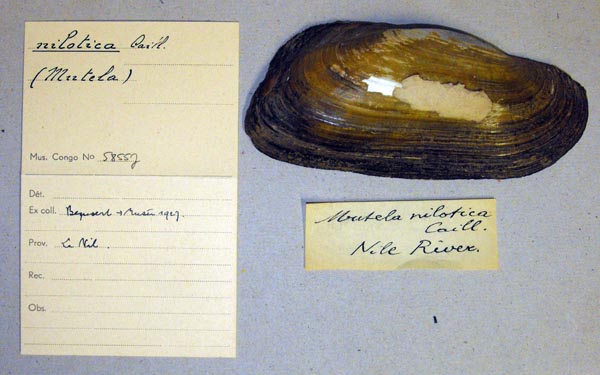 nilotica Caill.
(Mutela)
Mus. Congo No 58557
Dét.
Ex coll. 1927.
Prov. Le Nil.
Rec.
Obs.
Mutela nilotica
Caill.
Nile River.